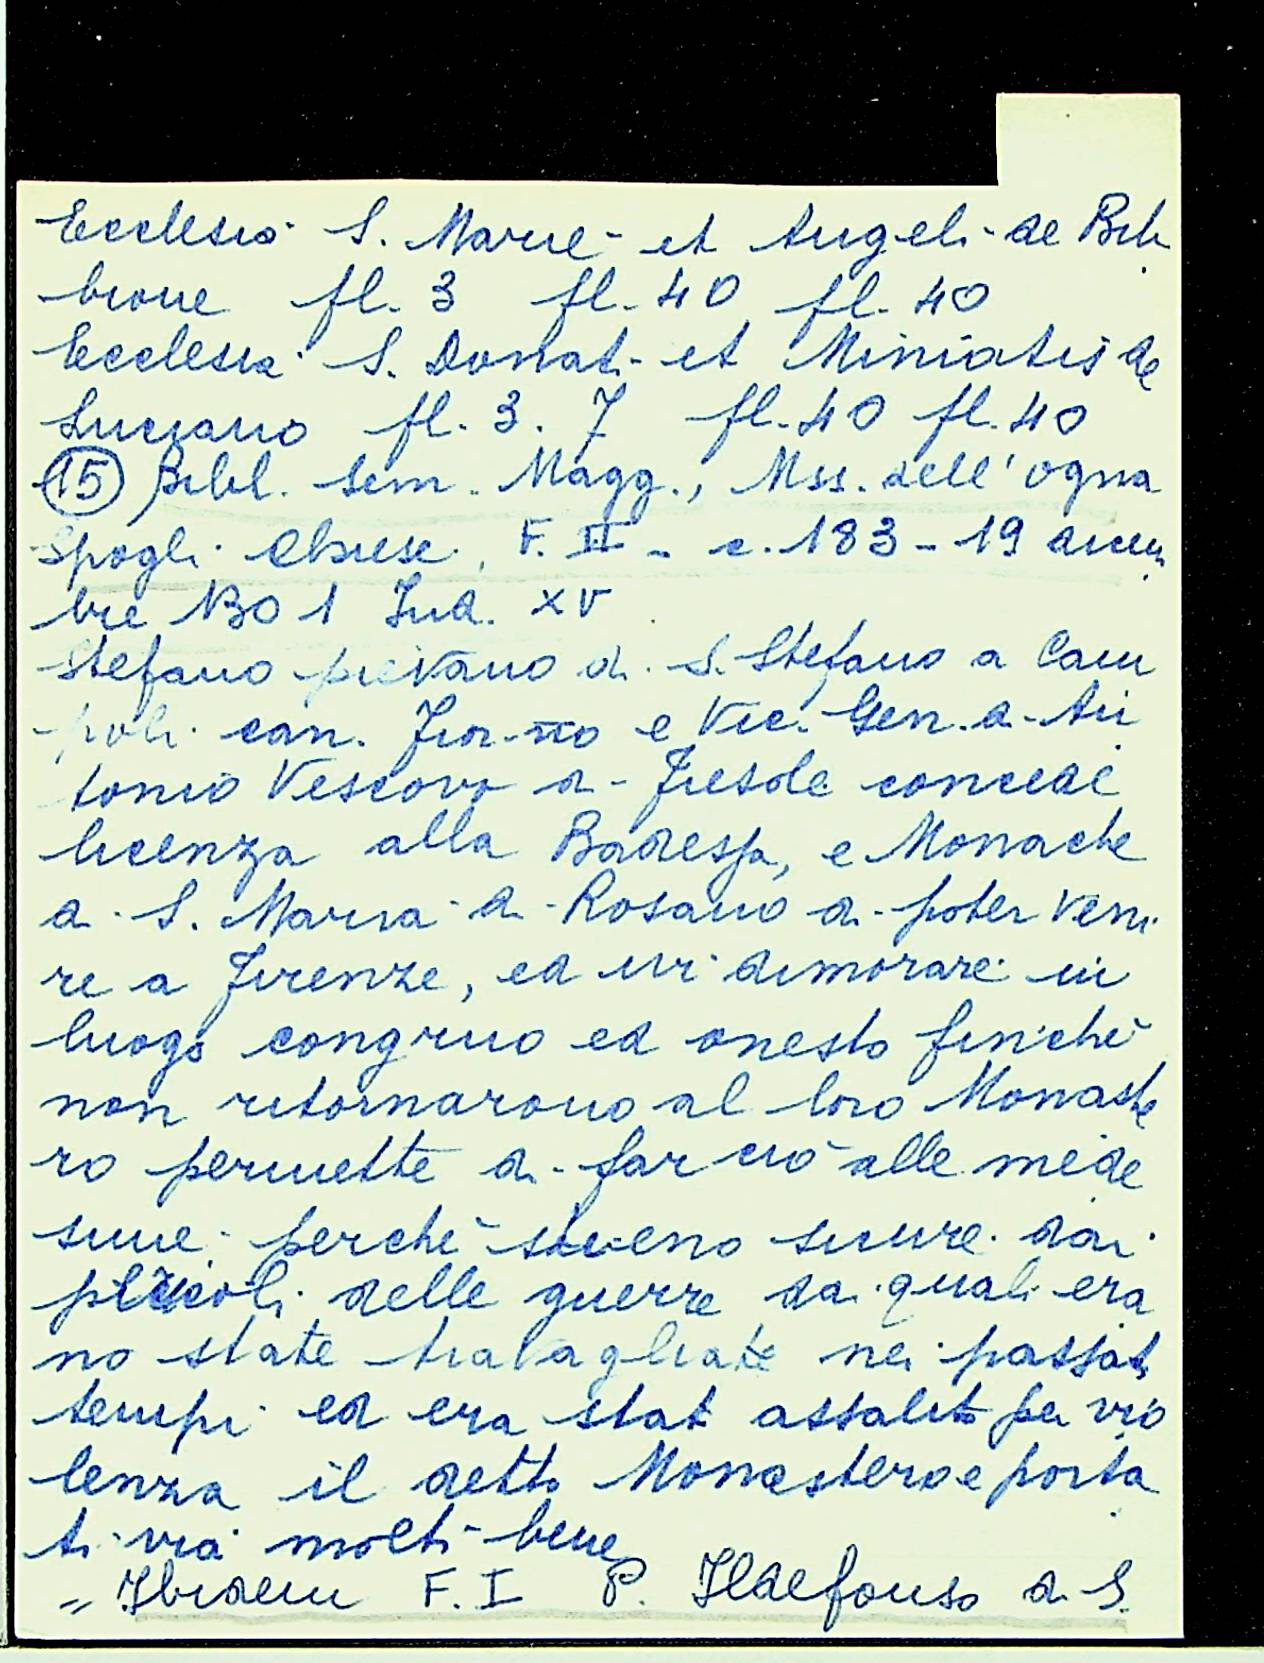 Ecclesia S. Marie et Angeli de Bib
bione fl. 3 fl. 40 fl. 40
Ecclesia S. Donati et Miniatis de
Luciano fl. 3. 7 fl. 40 fl. 40
(15) Bibl. Sem. Magg., Mss. dell'ogna
Spogli Chiese, F. II - c. 183 - 19 dicem
bre 1301 Ind. XV
Stefano pievano di S. Stefano a Cam
poli can. Fior-no e Vic. Gen. d. An
tonio Vescovo di Fiesole concede
licenza alla Badessa, e Monache
di S. Maria di Rosano di poter veni
re a Firenze, ed ivi dimorare in
luogo congruo ed onesto finchè
non ritornarono al loro Monaste
ro permette di far ciò alle mede
sime perchè sieno sicure dai
pericoli delle guerre da quali era
no state travagliate nei passati
tempi ed era stat assalito per vio
lenza il detto Monastero e porta
ti via molti bene
" Ibidem F. I P. Ildefonso di S.